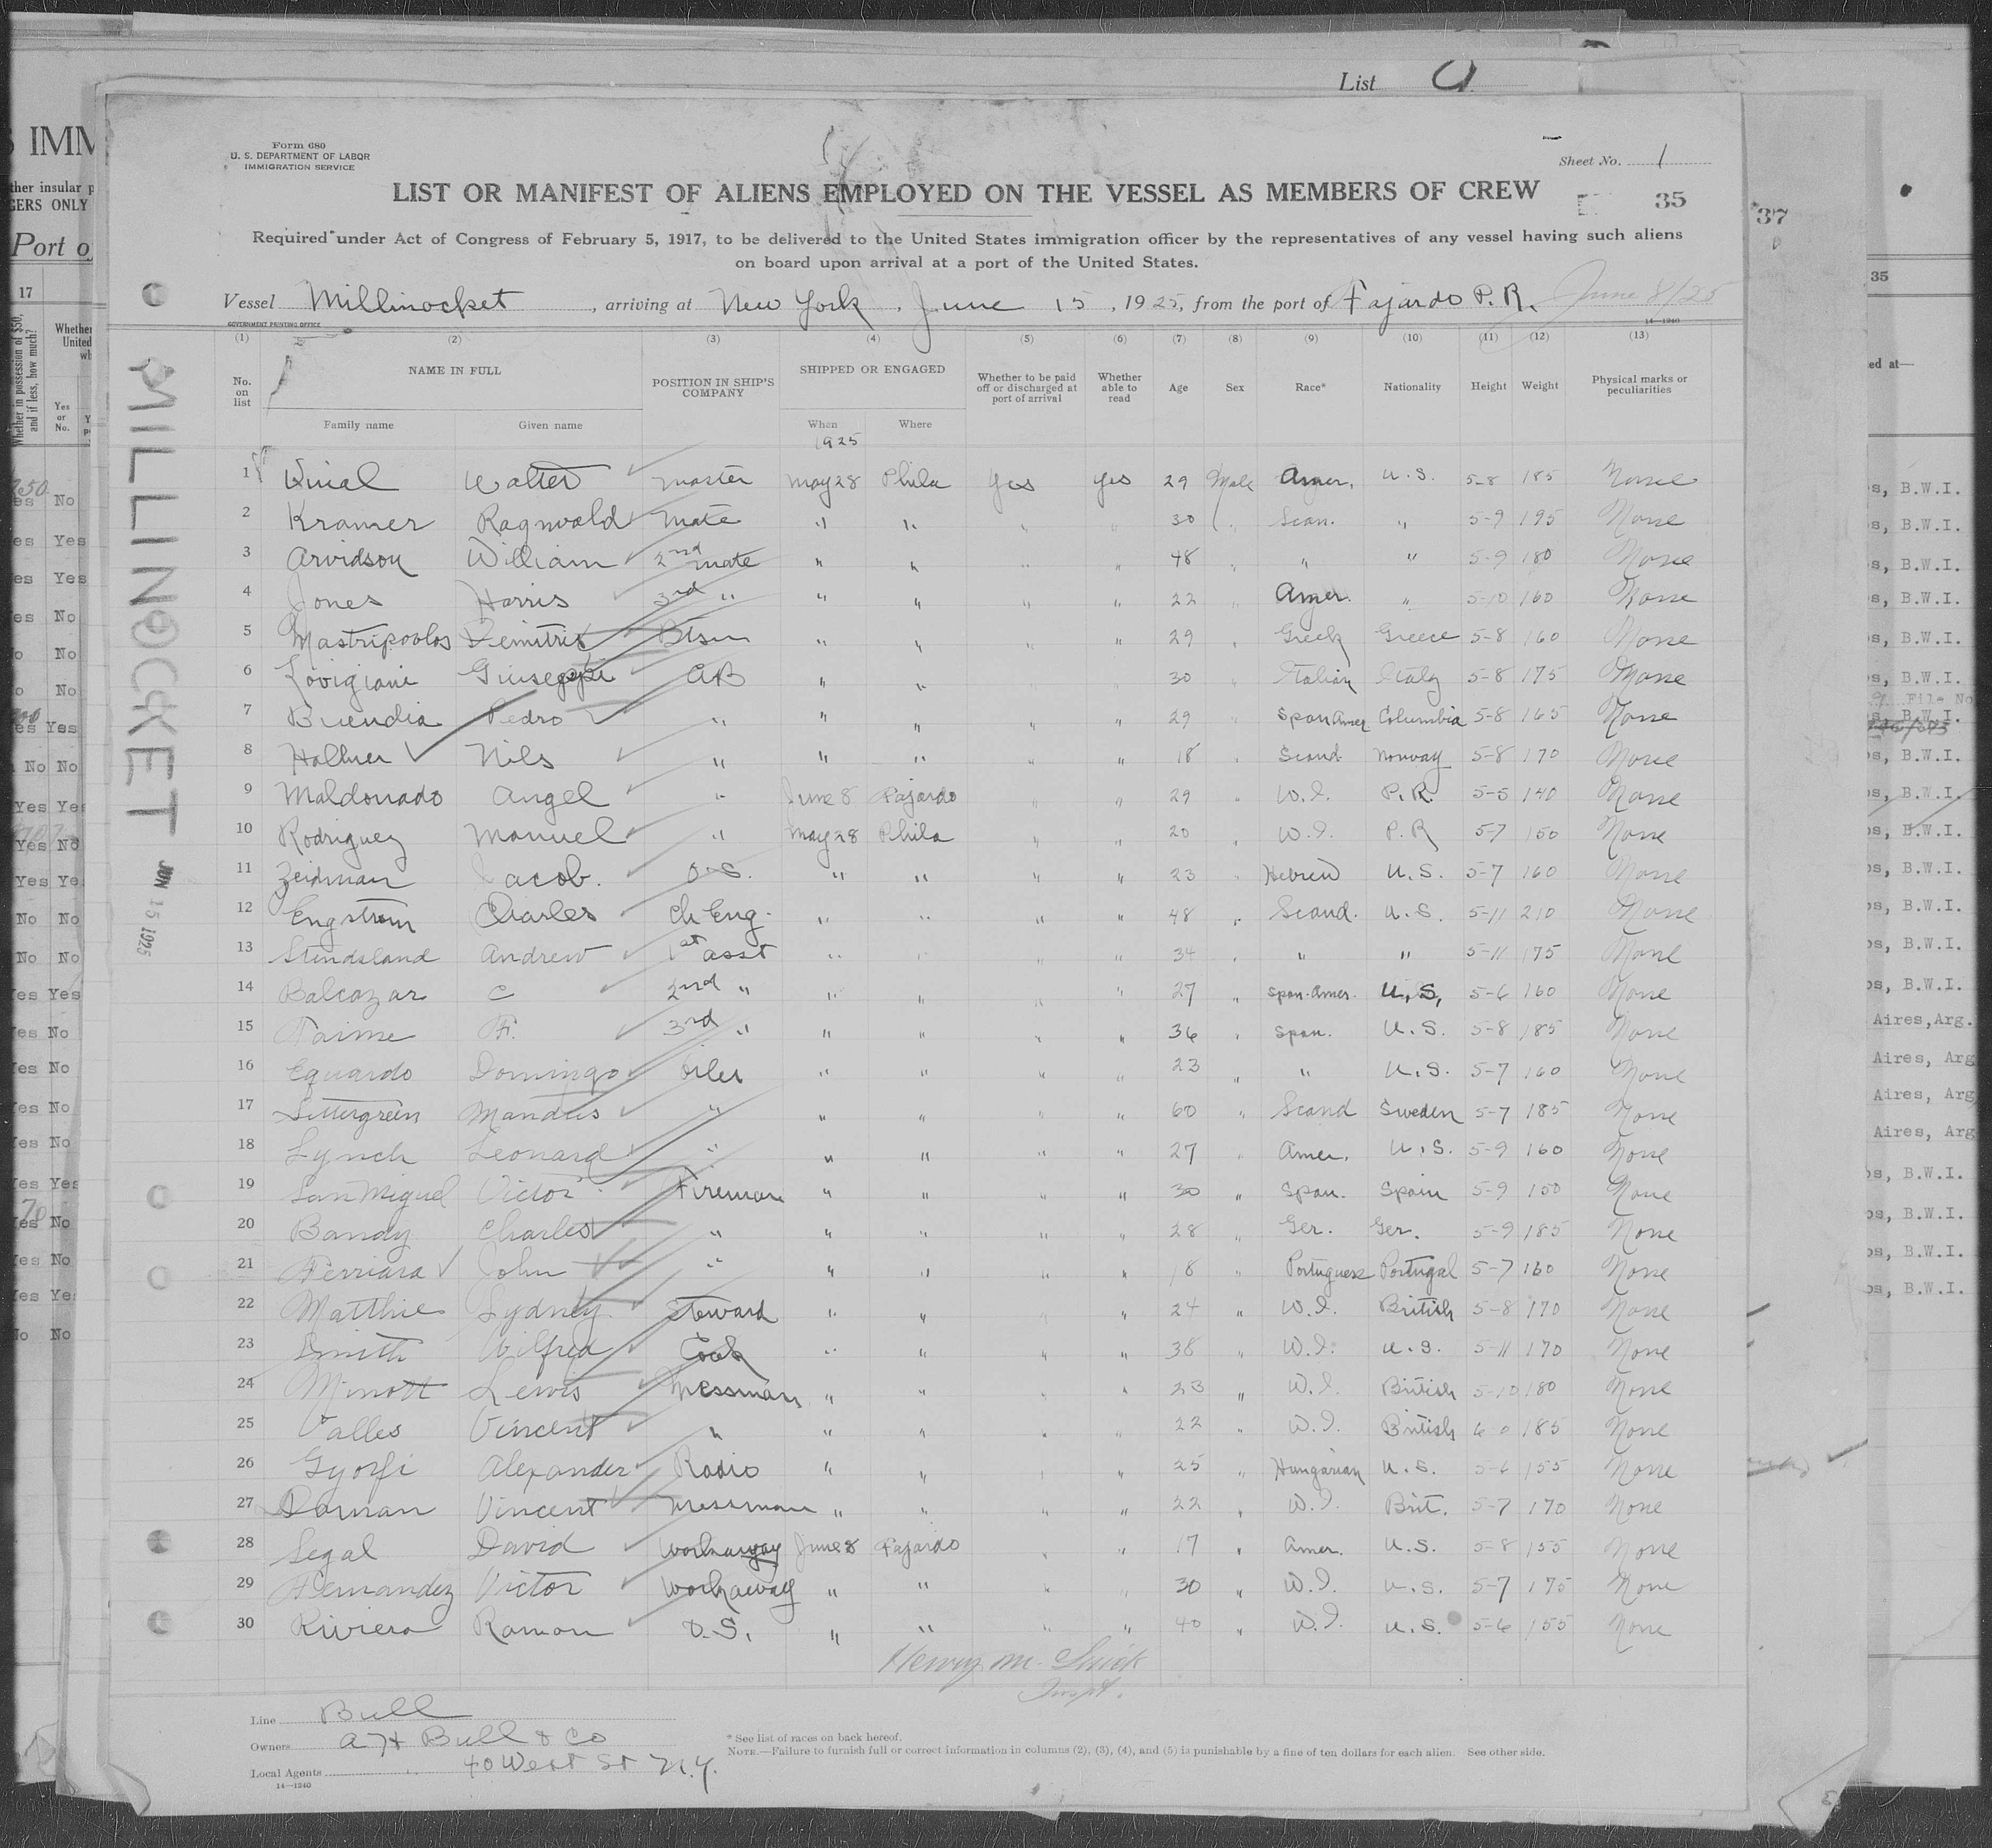 List
Form 680
U. S. DEPARTMENT OF LABOR
IMMIGRATION SERVICE
Sheet No. 1
LIST OR MANIFEST OF ALIENS EMPLOYED ON THE VESSEL AS MEMBERS OF CREW
35
37
Required under Act of Congress of February 5, 1917, to be delivered to the United States immigration officer by the representatives of any vessel having such aliens
on board upon arrival at a port of the United States.
Vessel Millinocket, arriving at New York, June 15, 1925, from the port of Fajardo P. R. June 8/25
GOVERNMENT PRINTING OFFICE 14—1240
(1) (2) (3) (4) (5) (6) (7) (8) (9) (10) (11) (12) (13)
No. on list NAME IN FULL POSITION IN SHIP'S COMPANY SHIPPED OR ENGAGED Whether to be paid off or discharged at port of arrival Whether able to read Age Sex Race* Nationality Height Weight Physical marks or peculiarities
Family name Given name When Where
1925
1 Walter master May 28 Phila Yes Yes 29 Male Amer. U.S. 5-8 185 None
2 Kramer Ragnvald mate " " " " 30 " Scan. " 5-9 195 None
3 Arvidson William 2nd mate " " " " 48 " " " 5-9 180 None
4 Jones Harris 3rd " " " " " 22 " Amer. " 5-10 160 None
5 Mastripoolos Demitris Btsn " " " " 29 " Greek Greece 5-8 160 None
6 Lovigiani Giuseppe AB " " " " 30 " Italian Italy 5-8 175 None
7 Buendia Pedro " " " " " 29 " Span Amer Columbia 5-8 165 None
8 Nils " " " " " 18 " Scand. Norway 5-8 170 None
9 Maldonado Angel " June 8 Fajardo " " 29 " W.I. P.R. 5-5 140 None
10 Rodriguez Manuel " May 28 Phila " " 20 " W.I. P.R 5-7 150 None
11 Zeidman Jacob. O.S. " " " " 23 " Hebrew U.S. 5-7 160 None
12 Engstrom Charles Ch Eng. " " " " 48 " Scand. U.S. 5-11 210 None
13 Stendsland Andrew 1st asst " " " " 34 " " " 5-11 175 None
14 Balcazar C 2nd " " " " " 27 " Span-Amer. U.S. 5-6 160 None
15 F. 3rd " " " " " 36 " Span. U.S. 5-8 185 None
16 Eguardo Domingo Oiler " " " " 23 " " U.S. 5-7 160 None
17 Settergreen Mandus " " " " " 60 " Scand Sweden 5-7 185 None
18 Lynch Leonard " " " " " 27 " Amer. U.S. 5-9 160 None
19 San Miguel Victor Fireman " " " " 30 " Span. Spain 5-9 150 None
20 Bandy Charles " " " " " 28 " Ger. Ger. 5-9 185 None
21 Ferriara John " " " " " 18 Portuguese Portugal 5-7 160 None
22 Matthie Sydney Steward " " " " 24 " W.I. British 5-8 170 None
23 Smith Wilfred Cook " " " " 38 " W.I. U.S. 5-11 170 None
24 Minott Lewis Messman " " " " 23 " W.I. British 5-10 180 None
25 Valles Vincent " " " " " 22 " W.I. British 6 0 185 None
26 Gyorfi Alexander Radio " " " " 25 " Hungarian U.S. 5-6 155 None
27 Vincent Messman " " " " 22 " W.I. Brit. 5-7 170 None
28 Segal David Workaway June 8 Fajardo " " 17 " Amer. U.S. 5-8 155 None
29 Fernandez Victor Workaway " " " " 30 " W.I. U.S. 5-7 175 None
30 Riviera Ramon O.S. " " " " 40 " W.I. U.S. 5-6 155 None
Henry M.
Inspt.
Line Bull
Owners A H Bull & Co
Local Agents " 40 West St N.Y.
14—1240
* See list of races on back hereof.
NOTE.—Failure to furnish full or correct information in columns (2), (3), (4), and (5) is punishable by a fine of ten dollars for each alien. See other side.
MILLINOCKET JUN 15 1925